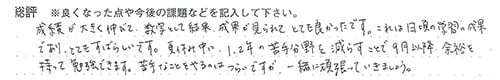 総評 ※良くなった点や今後の課題などを記入して下さい。
成績が大きく伸びて、数字として結果、成果が見られてとても良かったです。これは日頃の学習の成果
であり、とてもすばらしいです。夏休み中に、1, 2年の苦手分野を減らすことで9月以降、余裕を
持って勉強できます。苦手なことをやるのはつらいですが、一緒に頑張っていきましょう。